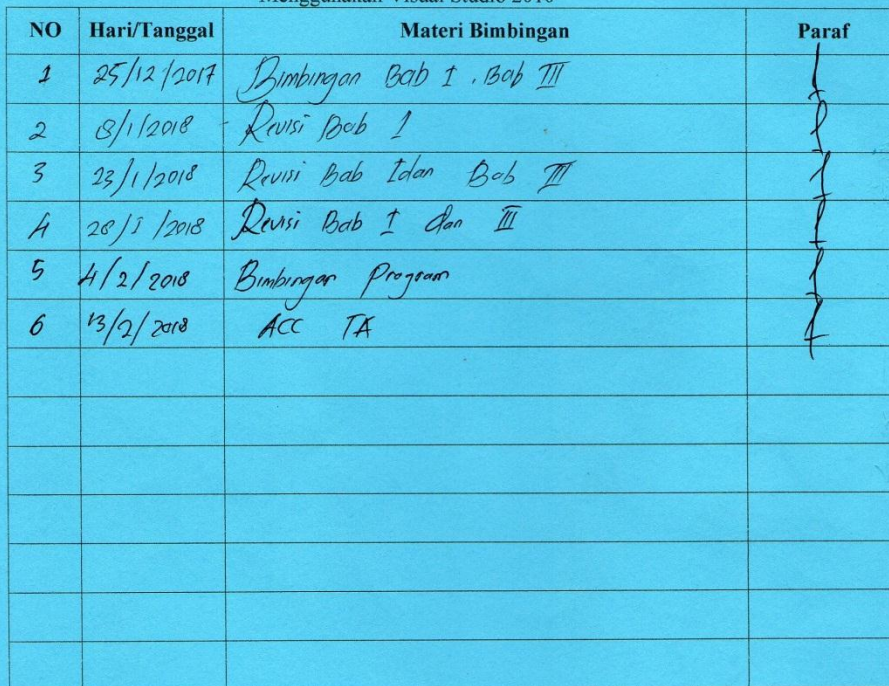 Menggunakan Visual Studio 2010
NO Hari/Tanggal Materi Bimbingan Paraf
1 25/12/2017 Bimbingan Bab I, Bab III
2 8/1/2018 - Revisi Bab 1
3 23/1/2018 Revisi Bab I dan Bab III
4 28/1/2018 Revisi Bab I dan III
5 4/2/2018 Bimbingan Program
6 13/2/2018 ACC TA